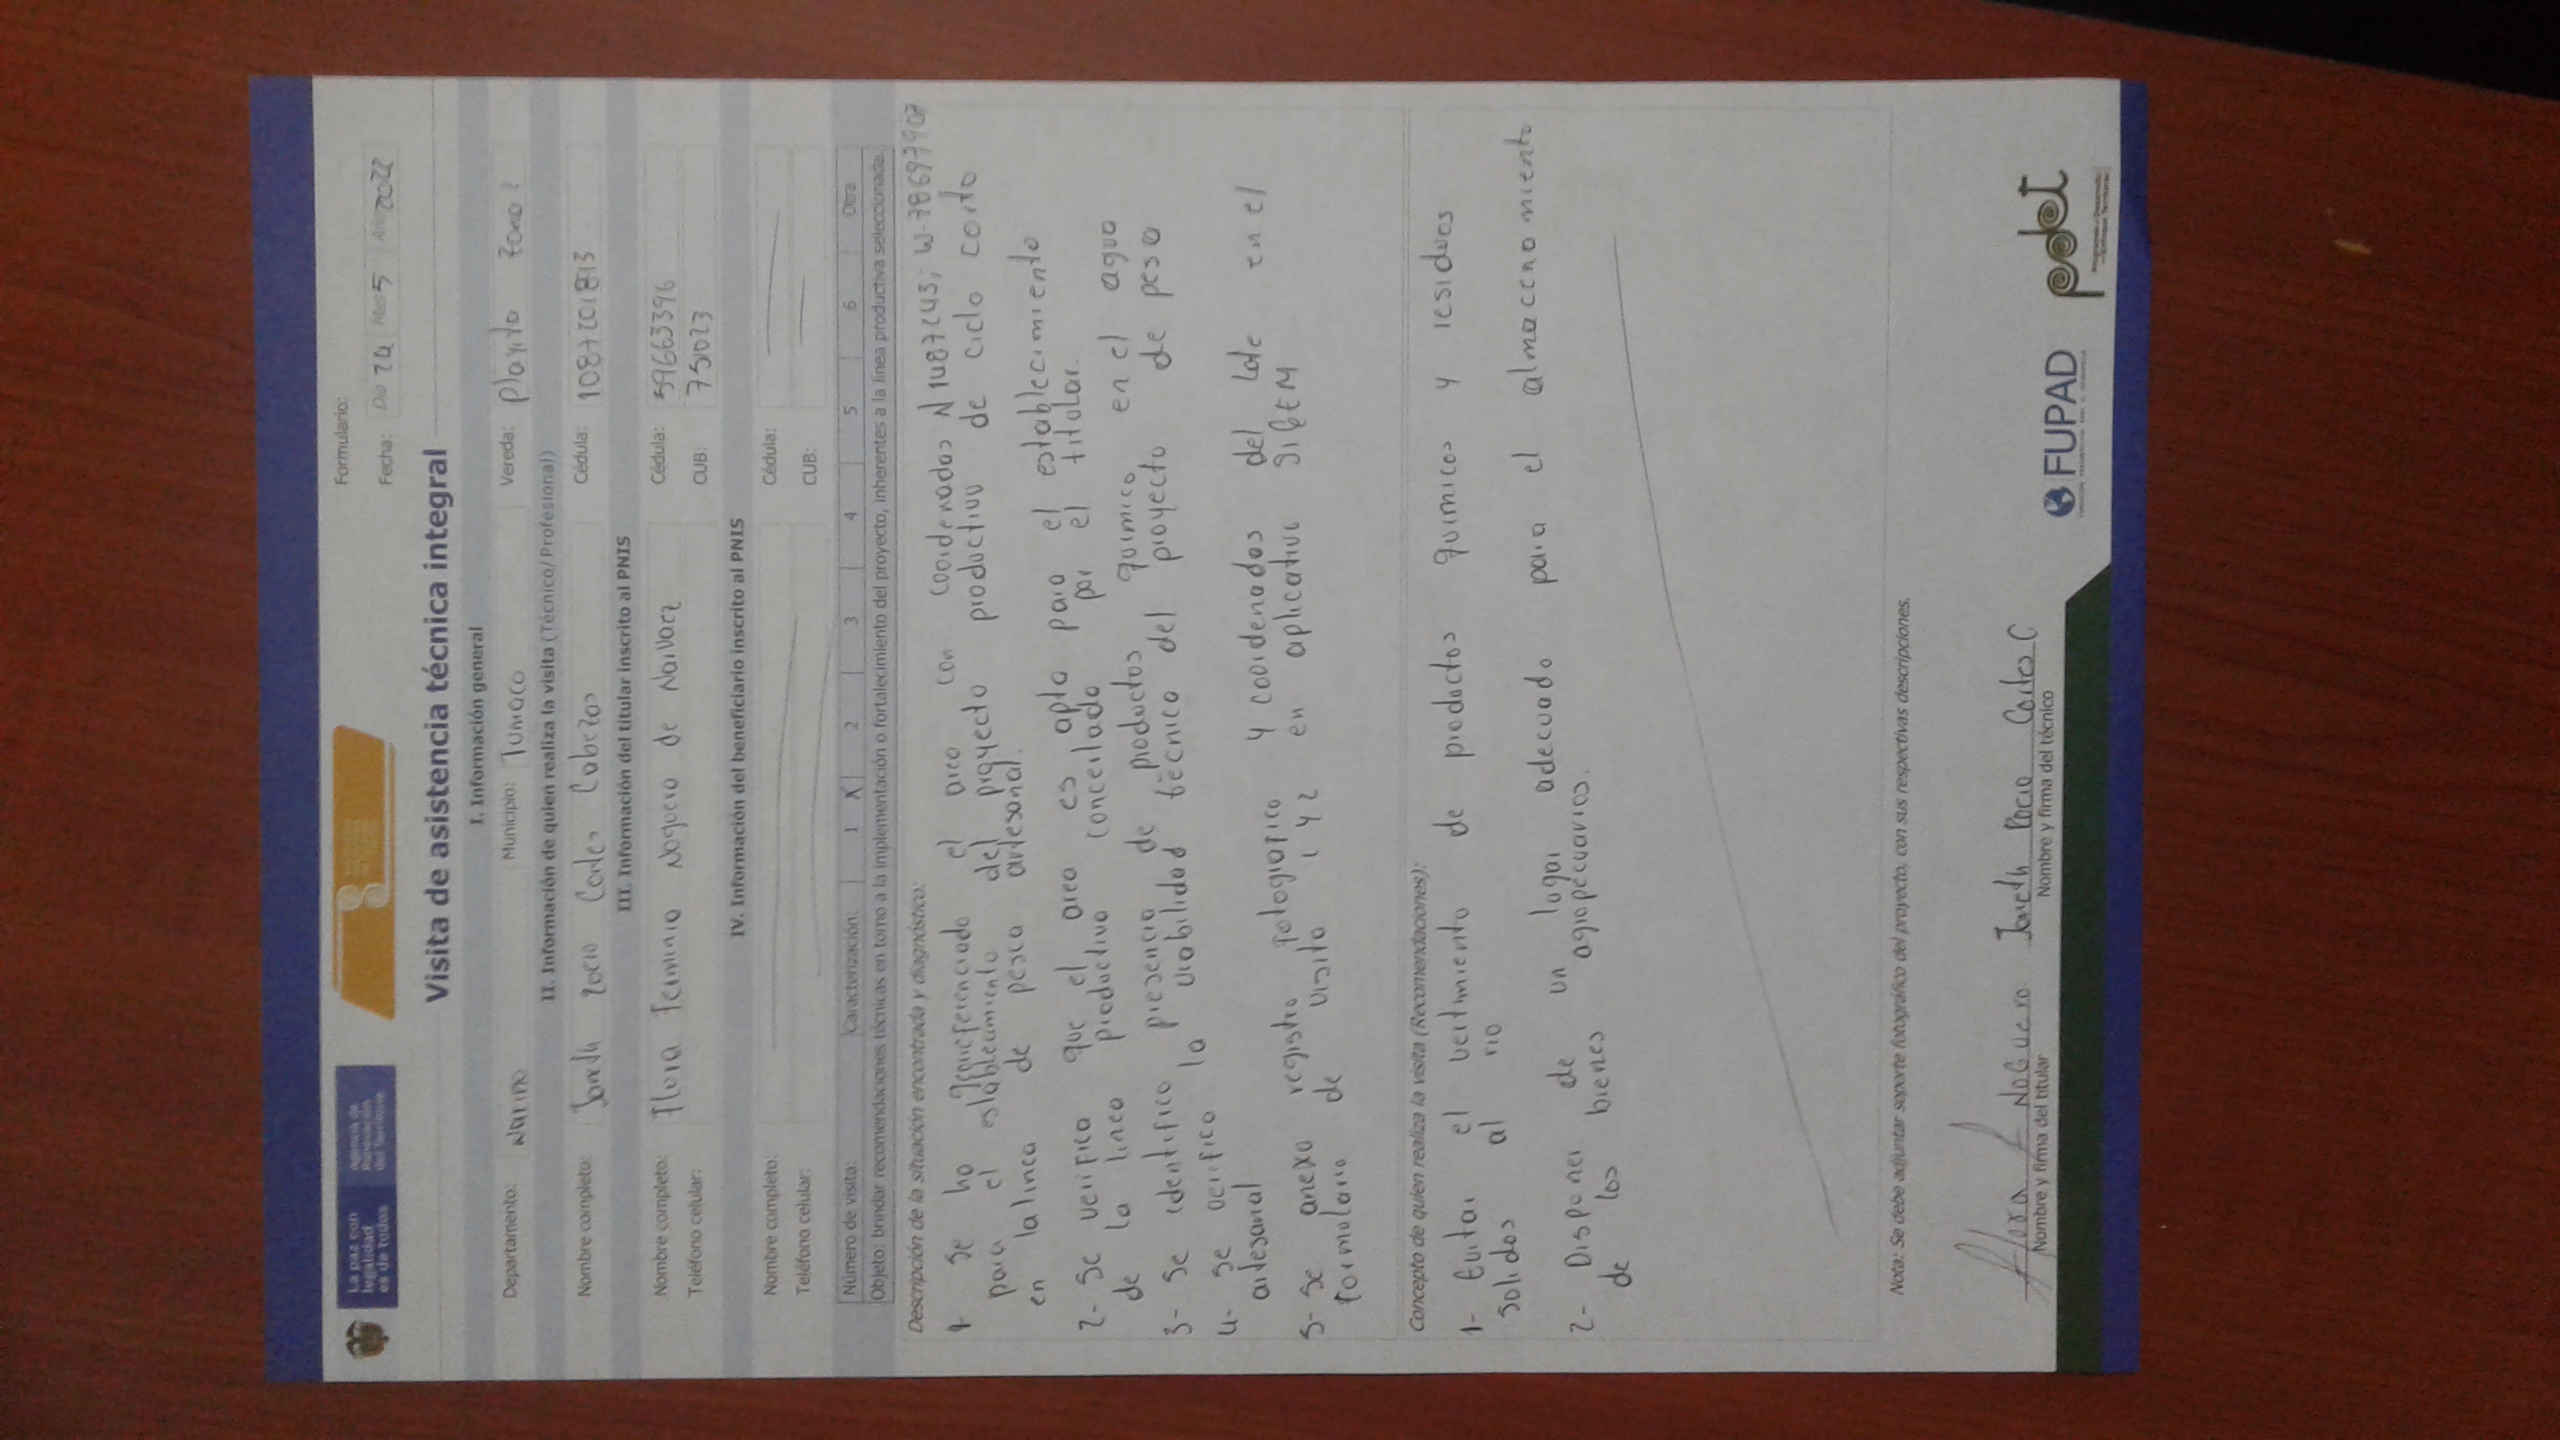 La paz con legalidad es de todos
Agencia de Renovación del Territorio
Formulario:
Fecha: Día 24 Mes 5 Año 2022
Visita de asistencia técnica integral
I. Información general
Departamento: Nariño Municipio: Tumaco Vereda: Playita zona 2
II. Información de quien realiza la visita (Técnico/Profesional)
Nombre completo: Janeth rocio Cortes Cabezas Cédula: 1087201813
III. Información del titular inscrito al PNIS
Nombre completo: Flora Ferminia Noguera de Narvaez Cédula: 596633396
Teléfono celular: CUB: 751023
IV. Información del beneficiario inscrito al PNIS
Nombre completo: Cédula:
Teléfono celular: CUB:
Número de visita: Caracterización: 1 X 2 3 4 5 6 Otra
Objeto: brindar recomendaciones técnicas en torno a la implementación o fortalecimiento del proyecto, inherentes a la línea productiva seleccionada.
Descripción de la situación encontrada y diagnóstico:
1- Se ha georeferenciado el area con coordenadas N 1.1872435; W-78.697902
para el establecimiento del proyecto productivo de ciclo corto
en la linea de pesca artesanal.
2- Se verifico que el area es apta para el establecimiento
de la linea productiva concertada por el titular.
3- Se identifico presencia de productos quimico en el agua
4- Se verifico la viabilidad técnica del proyecto de pesca
artesanal
5- Se anexo registro fotografico y coordenadas del lote en el
formulario de visita 1 y 2 en aplicativo SIGEM
Concepto de quien realiza la visita (Recomendaciones):
1- Evitar el vertimiento de productos quimicos y residuos
solidos al rio
2- Disponer de un lugar adecuado para el almacenamiento
de los bienes agropecuarios.
Nota: Se debe adjuntar soporte fotográfico del proyecto, con sus respectivas descripciones.
Flora Noguera
Nombre y firma del titular
Janeth Rocio Cortes C.
Nombre y firma del técnico
FUPAD
pdet